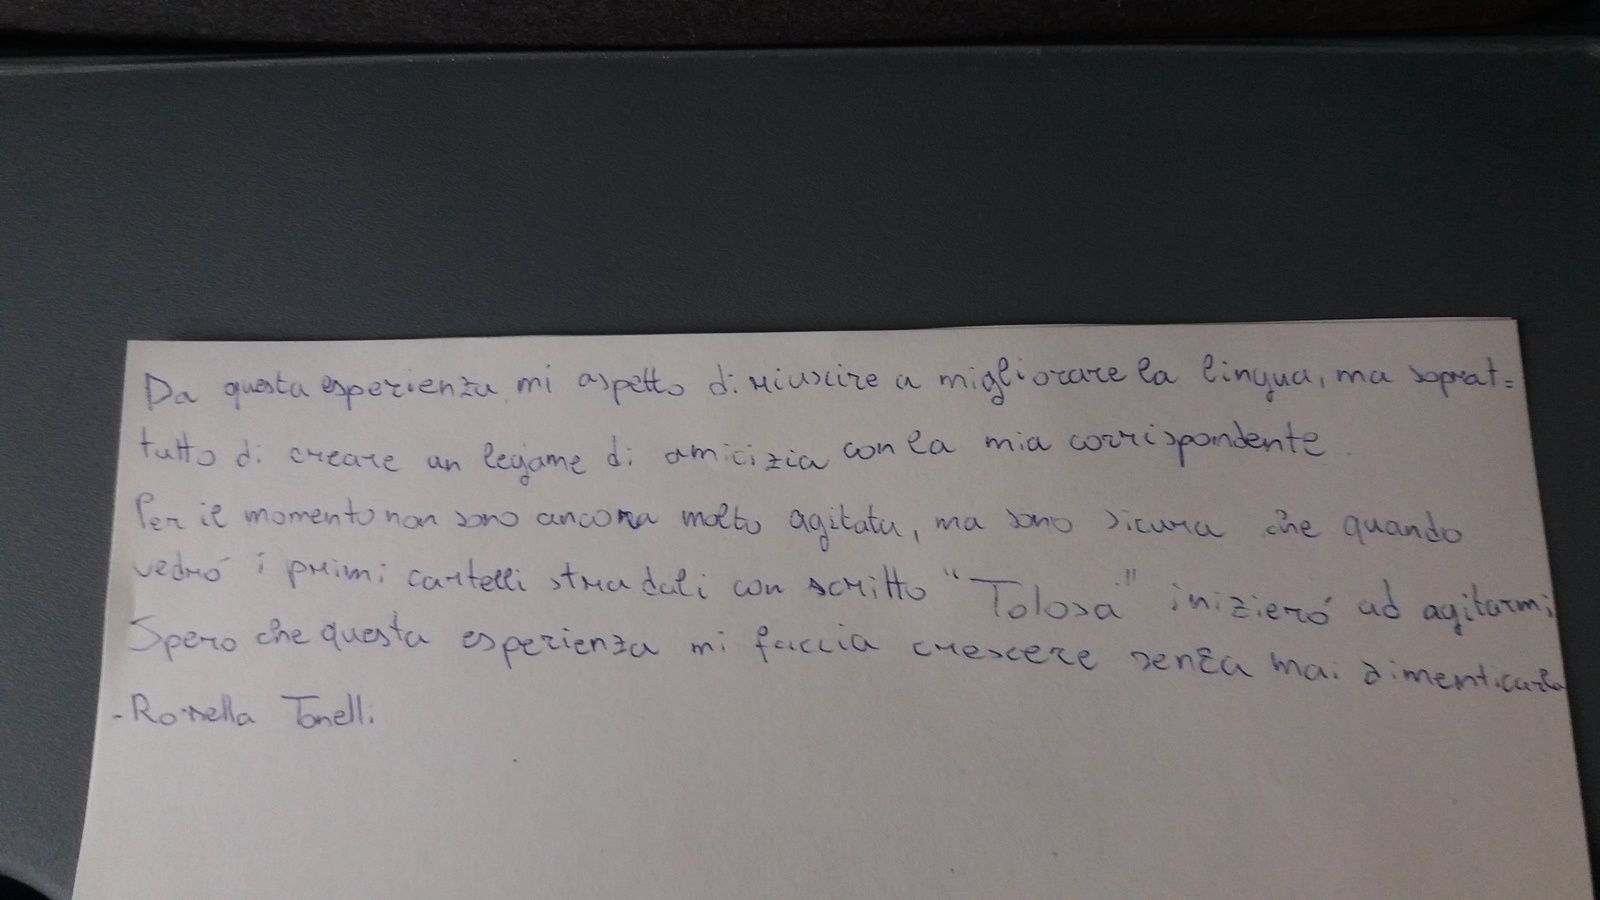 Da questa esperienza mi aspetto di riuscire a migliorare la lingua, ma soprat=
tutto di creare un legame di amicizia con la mia corrispondente.
Per il momento non sono ancora molto agitata, ma sono sicura che quando
vedró i primi cartelli stradali con scritto "Tolosa" inizieró ad agitarmi
Spero che questa esperienza mi faccia crescere senza mai dimenticarla
- Tonelli